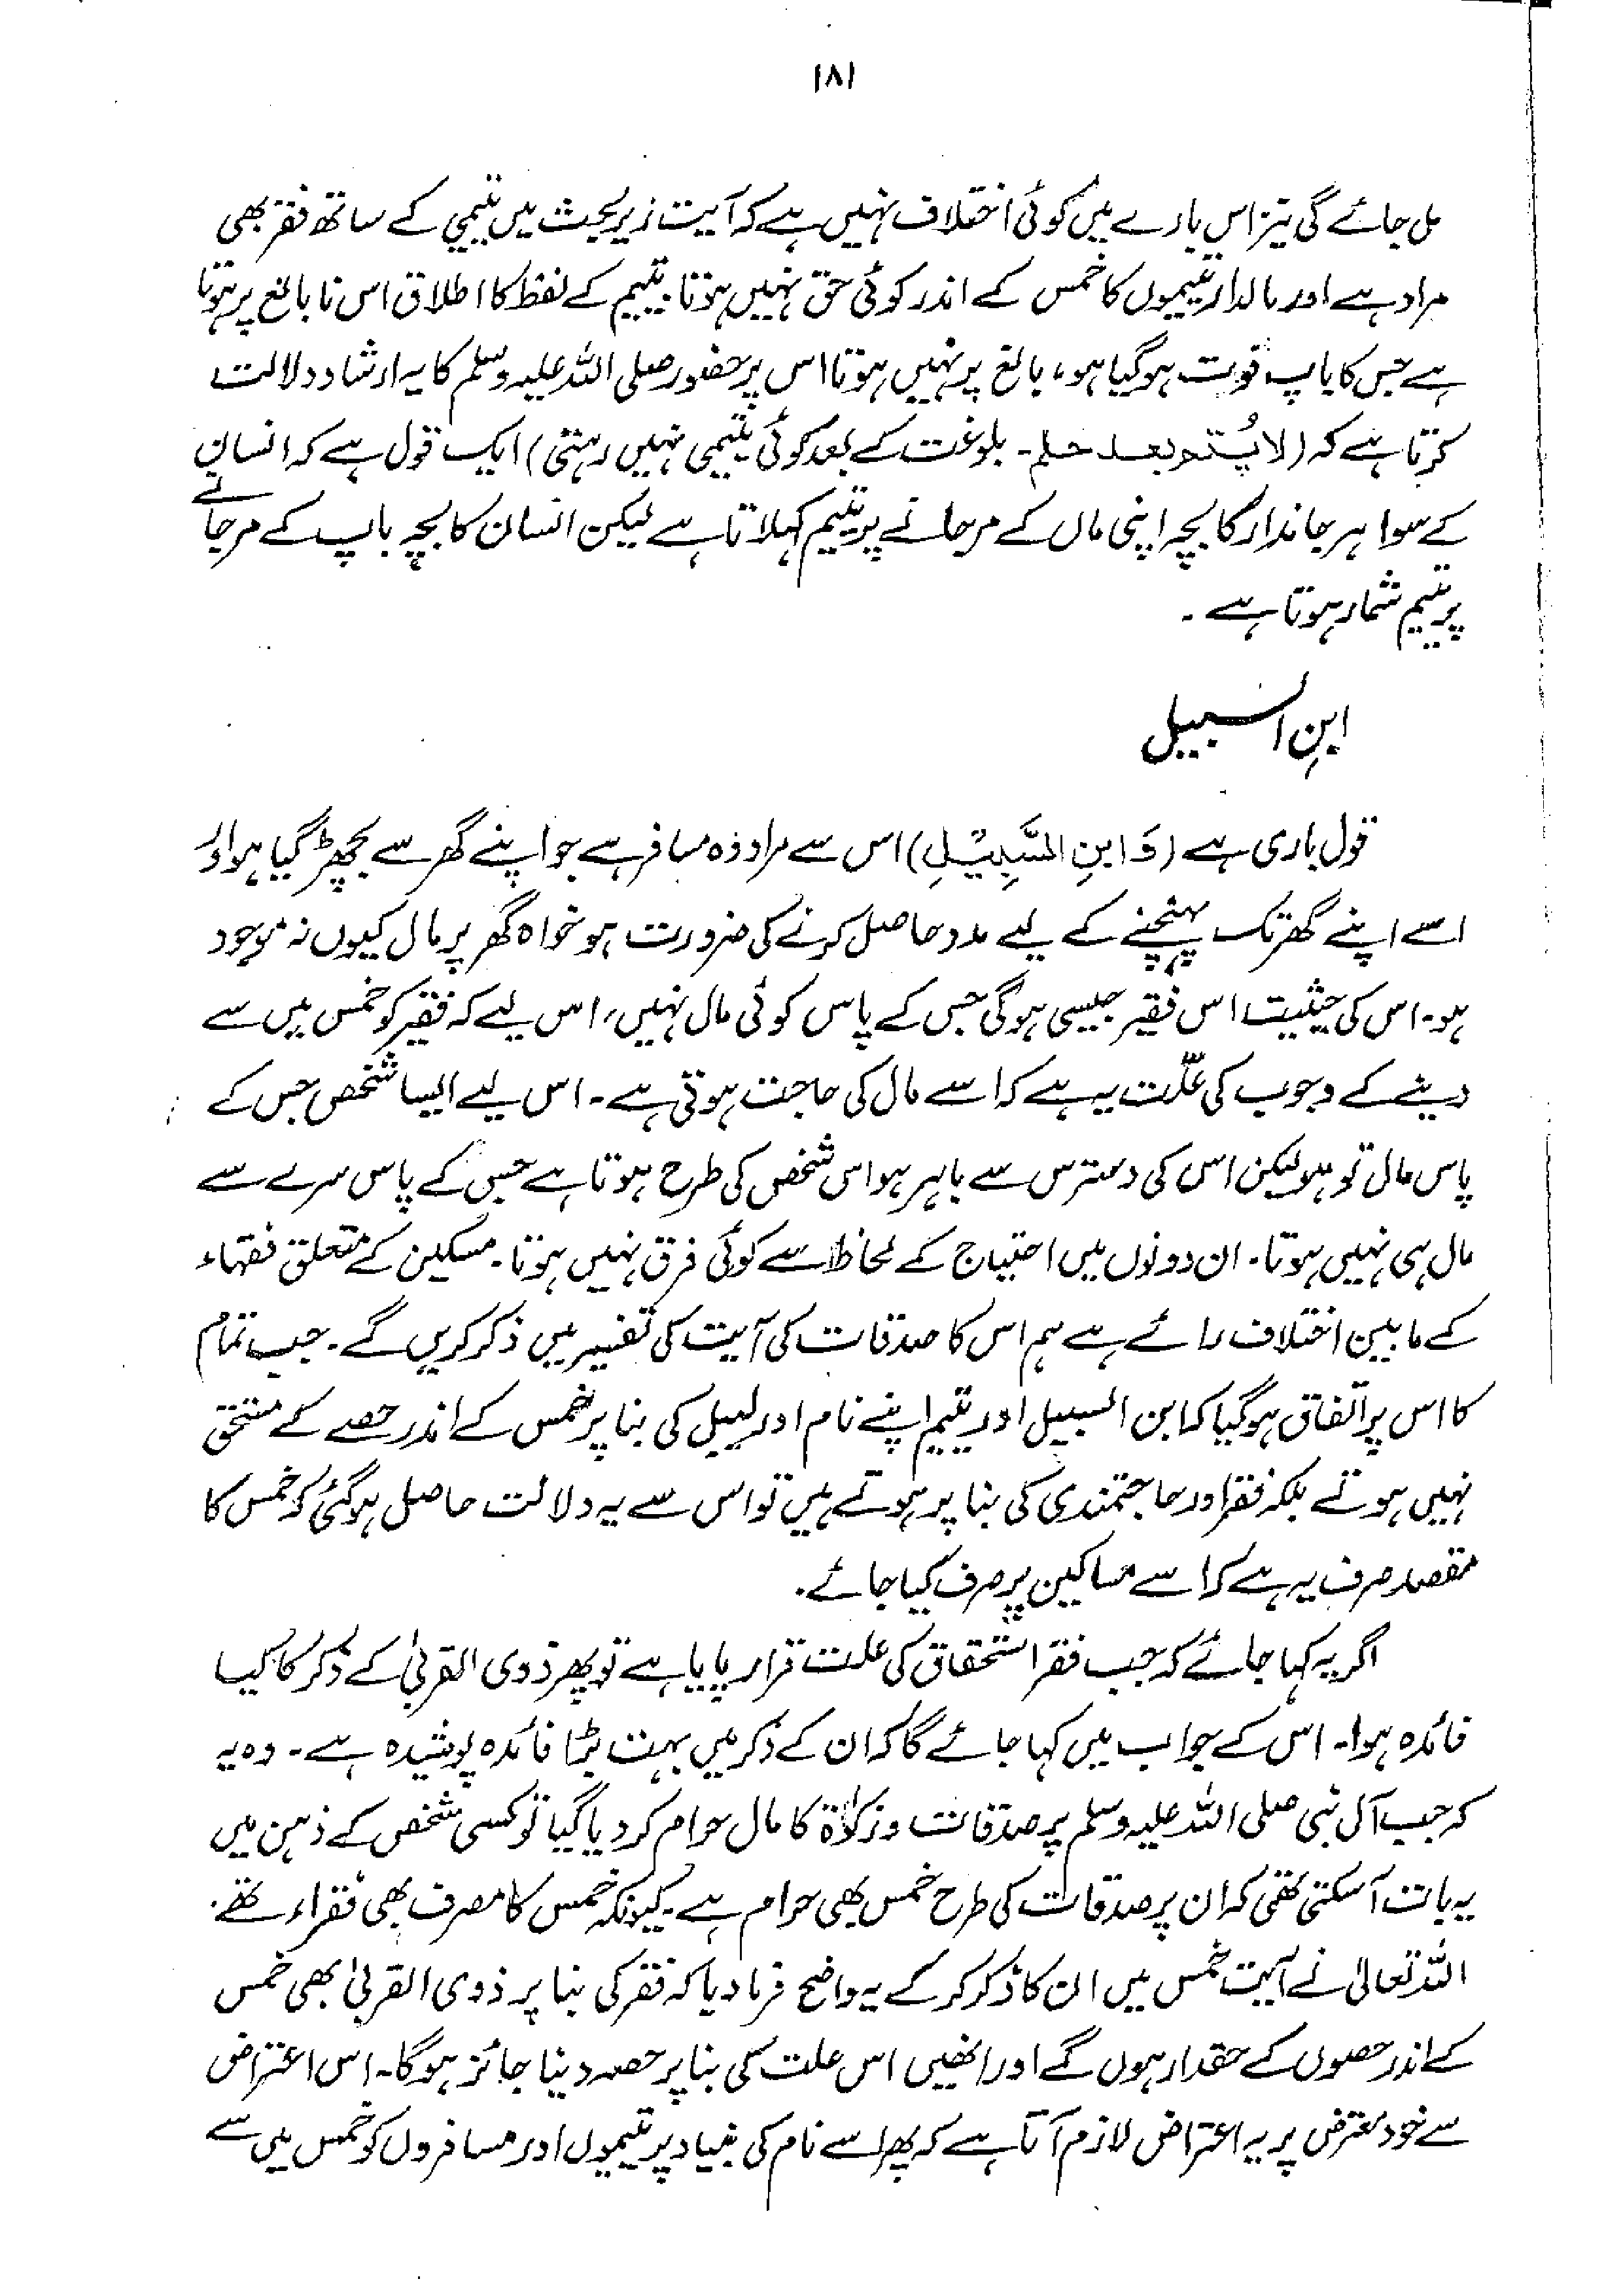 ۱۸۱
مل جائے گی نیز اس بارے میں کوئی اختلاف نہیں ہے کہ آیت زیر بحث میں یتیمی کے ساتھ فقر بھی
مراد ہے اور مالدار یتیموں کا خمس کے اندر کوئی حق نہیں ہوتا۔ یتیم کے لفظ کا اطلاق اس نابالغ پر ہوتا
ہے جس کا باپ فوت ہو گیا ہو، بالغ پر نہیں ہوتا اس پر حضور صلی اللہ علیہ وسلم کا یہ ارشاد دلالت
کرتا ہے کہ (لا یُتم بعد حلم۔ بلوغت کے بعد کوئی یتیمی نہیں رہتی) ایک قول ہے کہ انسان
کے سوا ہر جاندار کا بچہ اپنی ماں کے مر جانے پر یتیم کہلاتا ہے لیکن انسان کا بچہ باپ کے مر جانے
پر یتیم شمار ہوتا ہے۔
ابن السبیل
قول باری ہے (وَ ابنِ السَّبِیْلِ) اس سے مراد وہ مسافر ہے جو اپنے گھر سے بچھڑ گیا ہو اور
اسے اپنے گھر تک پہنچنے کے لیے مدد حاصل کرنے کی ضرورت ہو خواہ گھر پر مال کیوں نہ موجود
ہو۔ اس کی حیثیت اس فقیر جیسی ہوگی جس کے پاس کوئی مال نہیں، اس لیے کہ فقیر کو خمس میں سے
دینے کے وجوب کی علّت یہ ہے کہ اسے مال کی حاجت ہوتی ہے۔ اس لیے ایسا شخص جس کے
پاس مال تو ہو لیکن اس کی دسترس سے باہر ہو اس شخص کی طرح ہوتا ہے جس کے پاس سرے سے
مال ہی نہیں ہوتا۔ ان دونوں میں احتیاج کے لحاظ سے کوئی فرق نہیں ہوتا۔ مسکین کے متعلق فقہاء
کے مابین اختلاف رائے ہے ہم اس کا صدقات کی آیت کی تفسیر میں ذکر کریں گے۔ جب تمام
کا اس پر اتفاق ہو گیا کہ ابن السبیل اور یتیم اپنے نام اور لیبل کی بنا پر خمس کے اندر حصے کے مستحق
نہیں ہوتے بلکہ فقر اور حاجتمندی کی بنا پر ہوتے ہیں تو اس سے یہ دلالت حاصل ہو گئی کہ خمس کا
مقصد صرف یہ ہے کہ اسے مساکین پر صرف کیا جائے۔
اگر یہ کہا جائے کہ جب فقر استحقاق کی علت قرار پایا ہے تو پھر ذوی القربیٰ کے ذکر کا کیا
فائدہ ہوا۔ اس کے جواب میں کہا جائے گا کہ ان کے ذکر میں بہت بڑا فائدہ پوشیدہ ہے۔ وہ یہ
کہ جب آل نبی صلی اللہ علیہ وسلم پر صدقات و زکوٰۃ کا مال حرام کر دیا گیا تو کسی شخص کے ذہن میں
یہ بات آ سکتی تھی کہ ان پر صدقات کی طرح خمس بھی حرام ہے۔ کیونکہ خمس کا مصرف بھی فقراء تھے۔
اللہ تعالیٰ نے آیت خمس میں ان کا ذکر کر کے یہ واضح فرما دیا کہ فقر کی بنا پر ذوی القربیٰ بھی خمس
کے اندر حصوں کے حقدار ہوں گے اور انھیں اس علت کی بنا پر حصہ دینا جائز ہوگا۔ اس اعتراض
سے خود معترض پر یہ اعتراض لازم آتا ہے کہ پھر اسے نام کی بنیاد پر یتیموں اور مسافروں کو خمس میں سے